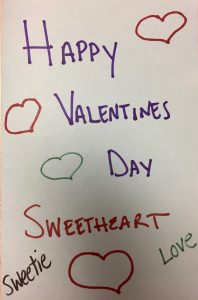 Happy
Valentines
Day
Sweetheart
Sweetie
Love